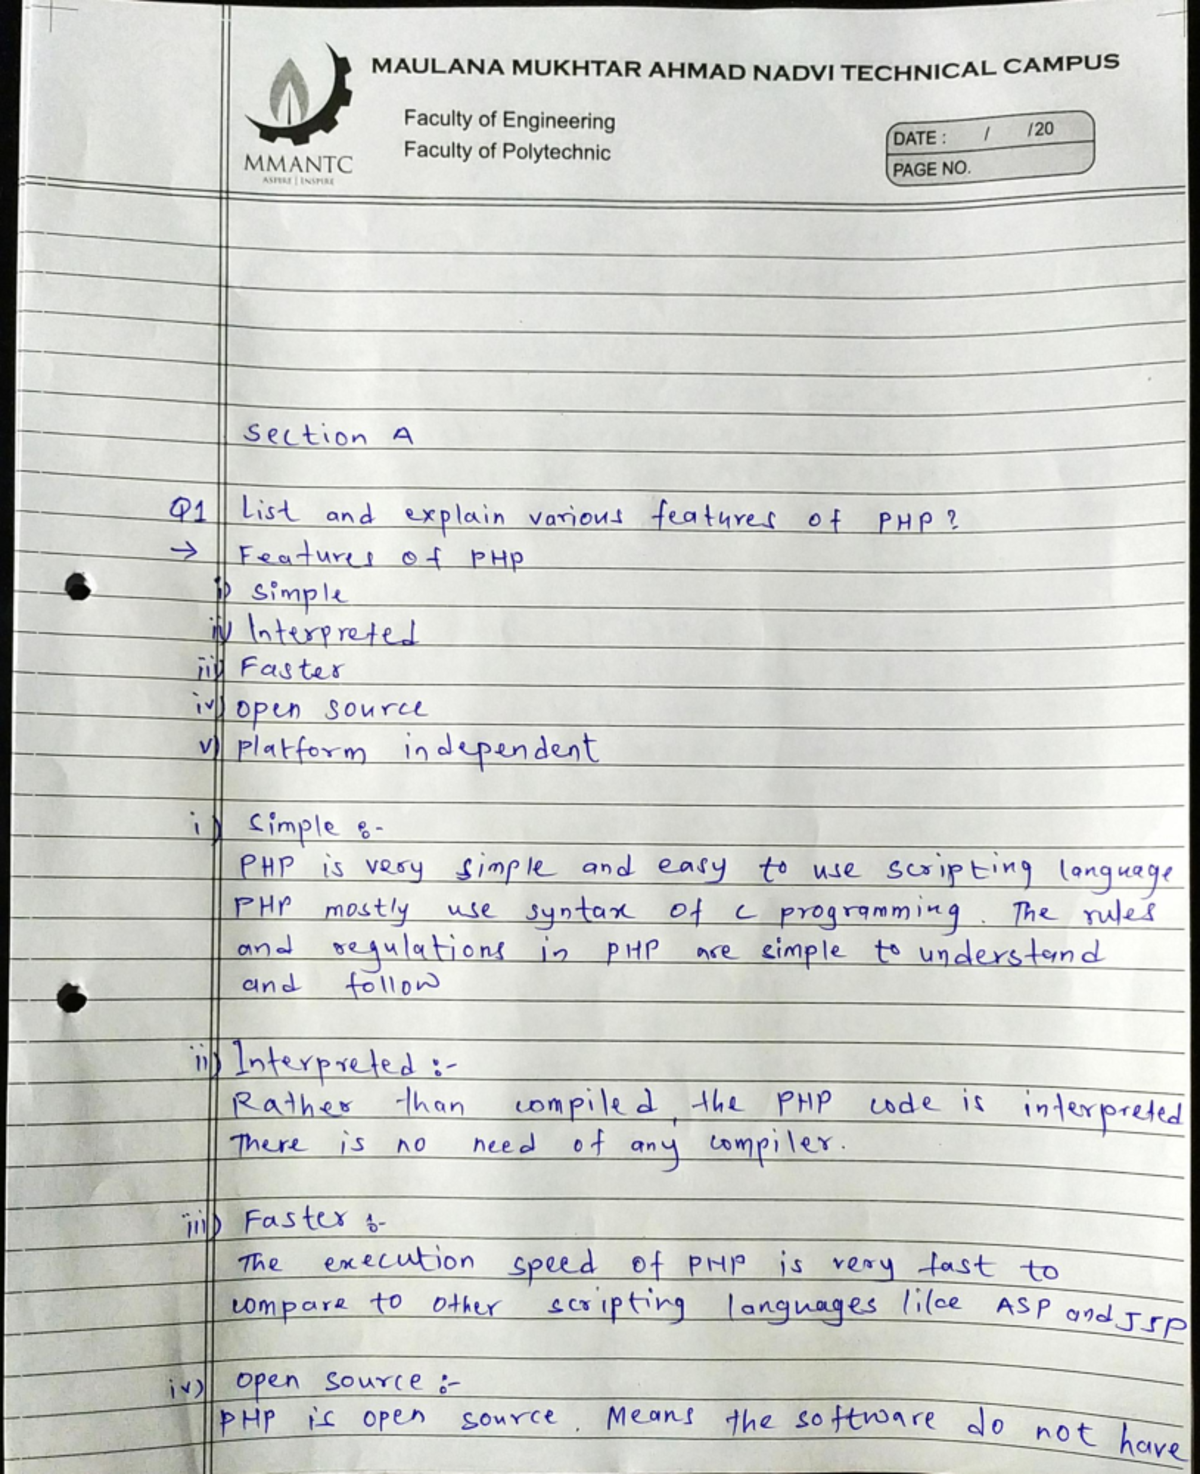 MAULANA MUKHTAR AHMAD NADVI TECHNICAL CAMPUS
Faculty of Engineering
Faculty of Polytechnic
MMANTC
ASPIRE | INSPIRE
DATE : / /20
PAGE NO.
Section A
Q1 List and explain various features of PHP?
→ Features of PHP
i) Simple
ii) Interpreted
iii) Faster
iv) open source
v) platform independent
i) Simple :-
PHP is very simple and easy to use scripting language
PHP mostly use syntax of c programming. The rules
and regulations in PHP are simple to understand
and follow
ii) Interpreted :-
Rather than compiled, the PHP code is interpreted
There is no need of any compiler.
iii) Faster :-
The execution speed of PHP is very fast to
compare to other scripting languages like ASP and JSP
iv) open source :-
PHP is open source. Means the software do not have